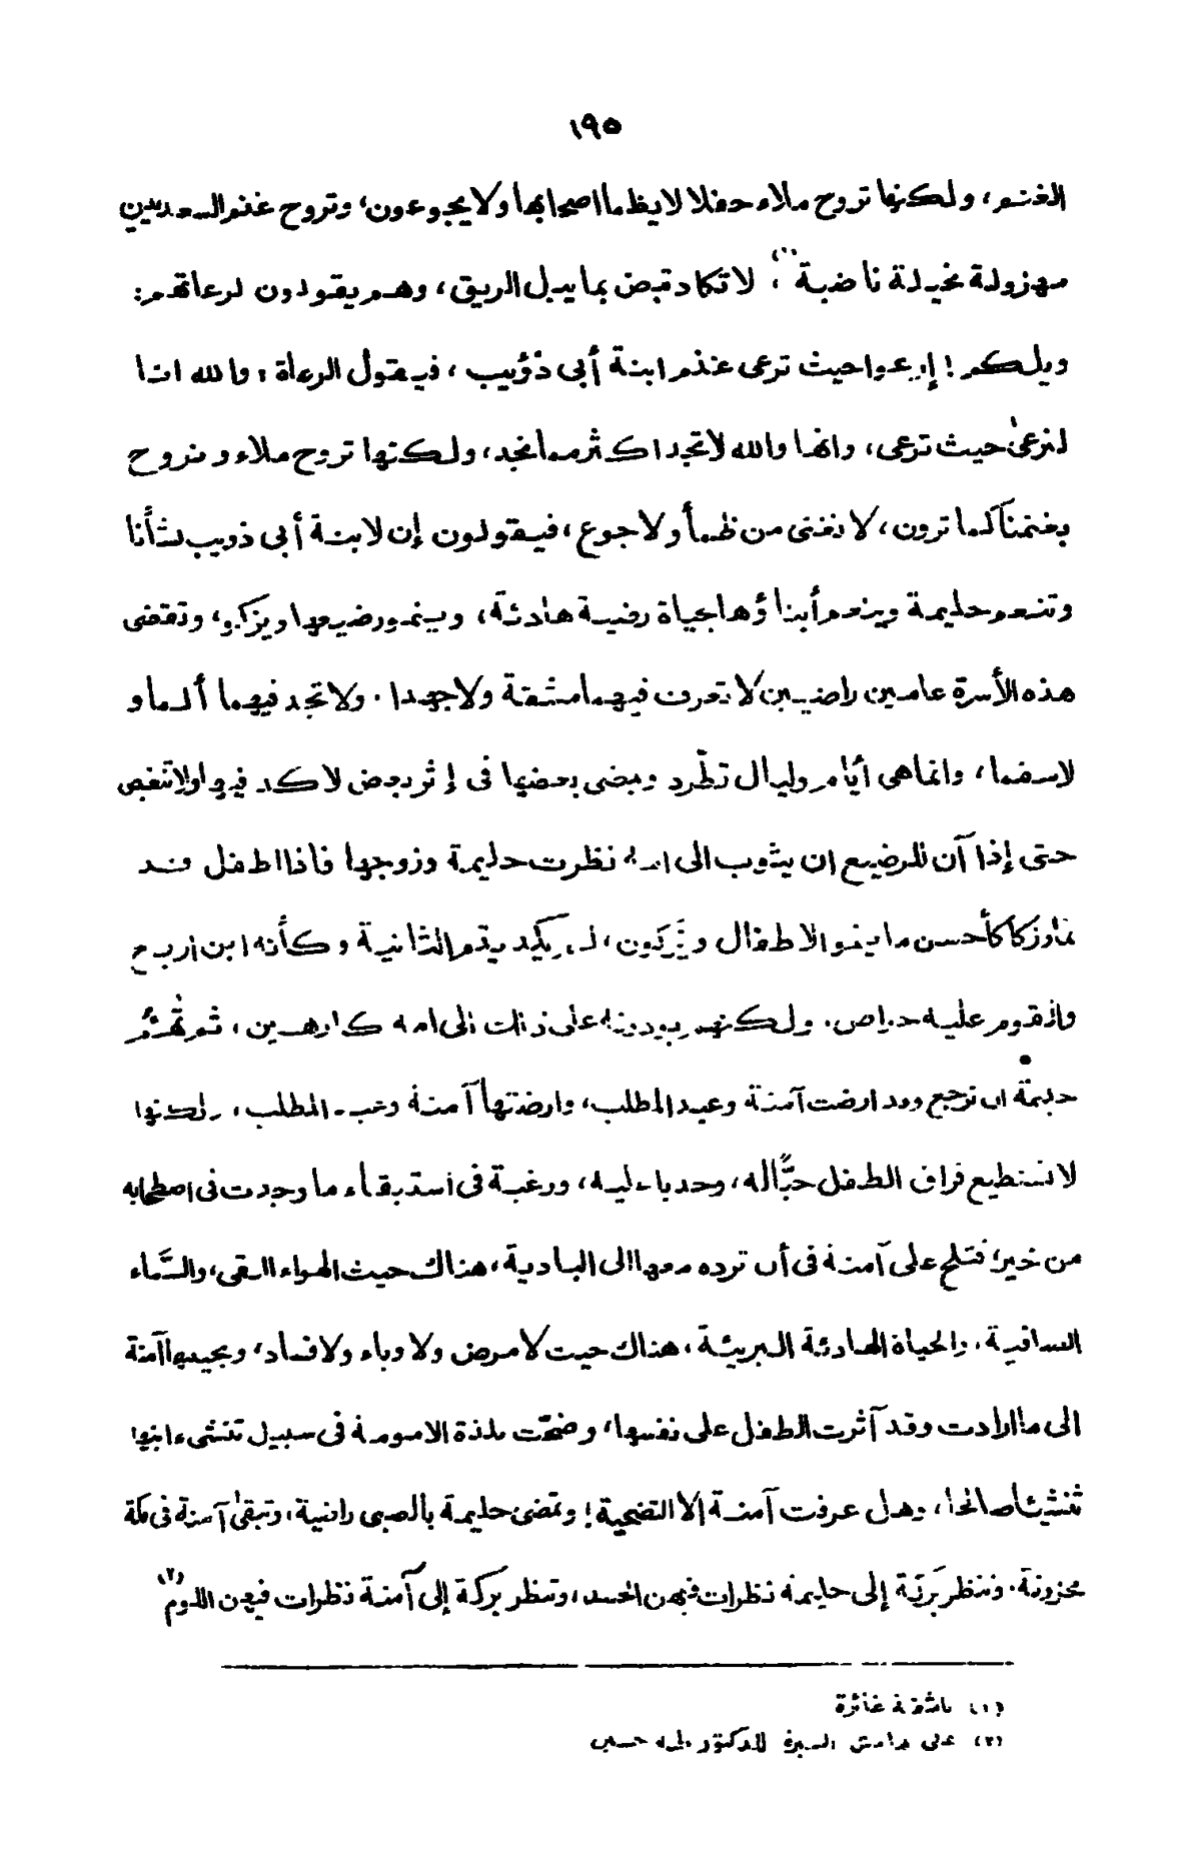 ١٩٥
الغنم، ولكنها تروح ملاء حفلا لا يظمأ اصحابها ولا يجوعون، وتروح غنم السعديين
مهزولة نحيلة ناضبة (١)، لا تكاد تبض بما يبل الريق، وهم يقولون لرعاتهم:
ويلكم! إرعوا حيث ترعى غنم ابنة أبى ذؤيب، فيقول الرعاة: والله انا
لنرعى حيث ترعى، وانها والله لا تجد اكثر مما نجد، ولكنها تروح ملاء ونروح
بغنمنا كما ترون، لا تغنى من ظمأ ولا جوع، فيقولون إن لابنة أبى ذويب لشأنا
وتنعم حليمة وينعم أبناؤها بحياة رضية هادئة، وينمو رضيعها ويزكو، وتقضى
هذه الأسرة عامين راضيين لا تعرف فيهما مشقة ولا جهدا. ولا تجد فيهما ألما و
لا سقما، وانما هى أيام وليال تطّرد ويمضى بعضها فى إثر بعض لا كد فيها ولا تنغص
حتى إذا آن للرضيع ان يثوب الى امه نظرت حليمة وزوجها فاذا الطفل قد
نما وزكا كأحسن ما ينمو الاطفال ويزكون، لم يكد يتم الثانية وكأنه ابن اربع
واذ قوم عليه حراص. ولكنهم يردونه على ذلك الى امه كارهين، ثم تهمّ
حليمة ان ترجع وقد ارضت آمنة وعبد المطلب، وارضتها آمنة وعبد المطلب، ولكنها
لا تستطيع فراق الطفل حبّا له، وحدبا عليه، ورغبة فى استبقاء ما وجدت فى اصطحابه
من خير، فتلح على آمنة فى أن ترده معها الى البادية، هناك حيث الهواء النقى، والسّماء
الصافية. والحياة الهادئة البريئة، هناك حيث لا مرض ولا وباء ولا فساد، وتجيبها آمنة
الى ما ارادت وقد آثرت الطفل على نفسها، وضحّت بلذة الامومة فى سبيل تنشىء ابنها
تنشيئا صالحا، وهل عرفت آمنة إلا التضحية! وتمضى حليمة بالصبى راضية، وتبقى آمنة فى مكة
محزونة. وتنظر بركة إلى حليمة نظرات فيهن الحسد، وتنظر بركة إلى آمنة نظرات فيهن اللوم (٢)
(١) ناشفة غائرة
(٢) على هامش السيرة للدكتور طه حسين